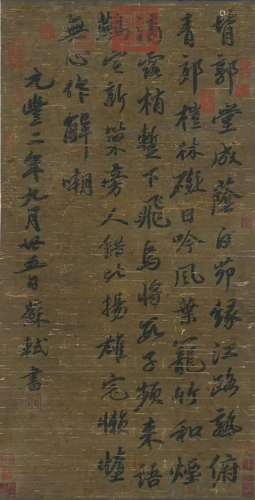 背郭堂成蔭白茆緣江路熟俯
青郊榿林礙日吟風葉籠竹和煙
滴露梢暫下飛烏將數子頻來語
鷰定新巢旁人錯比揚雄宅懶墮
無心作解嘲
元豐二年九月廿五日蘇軾書